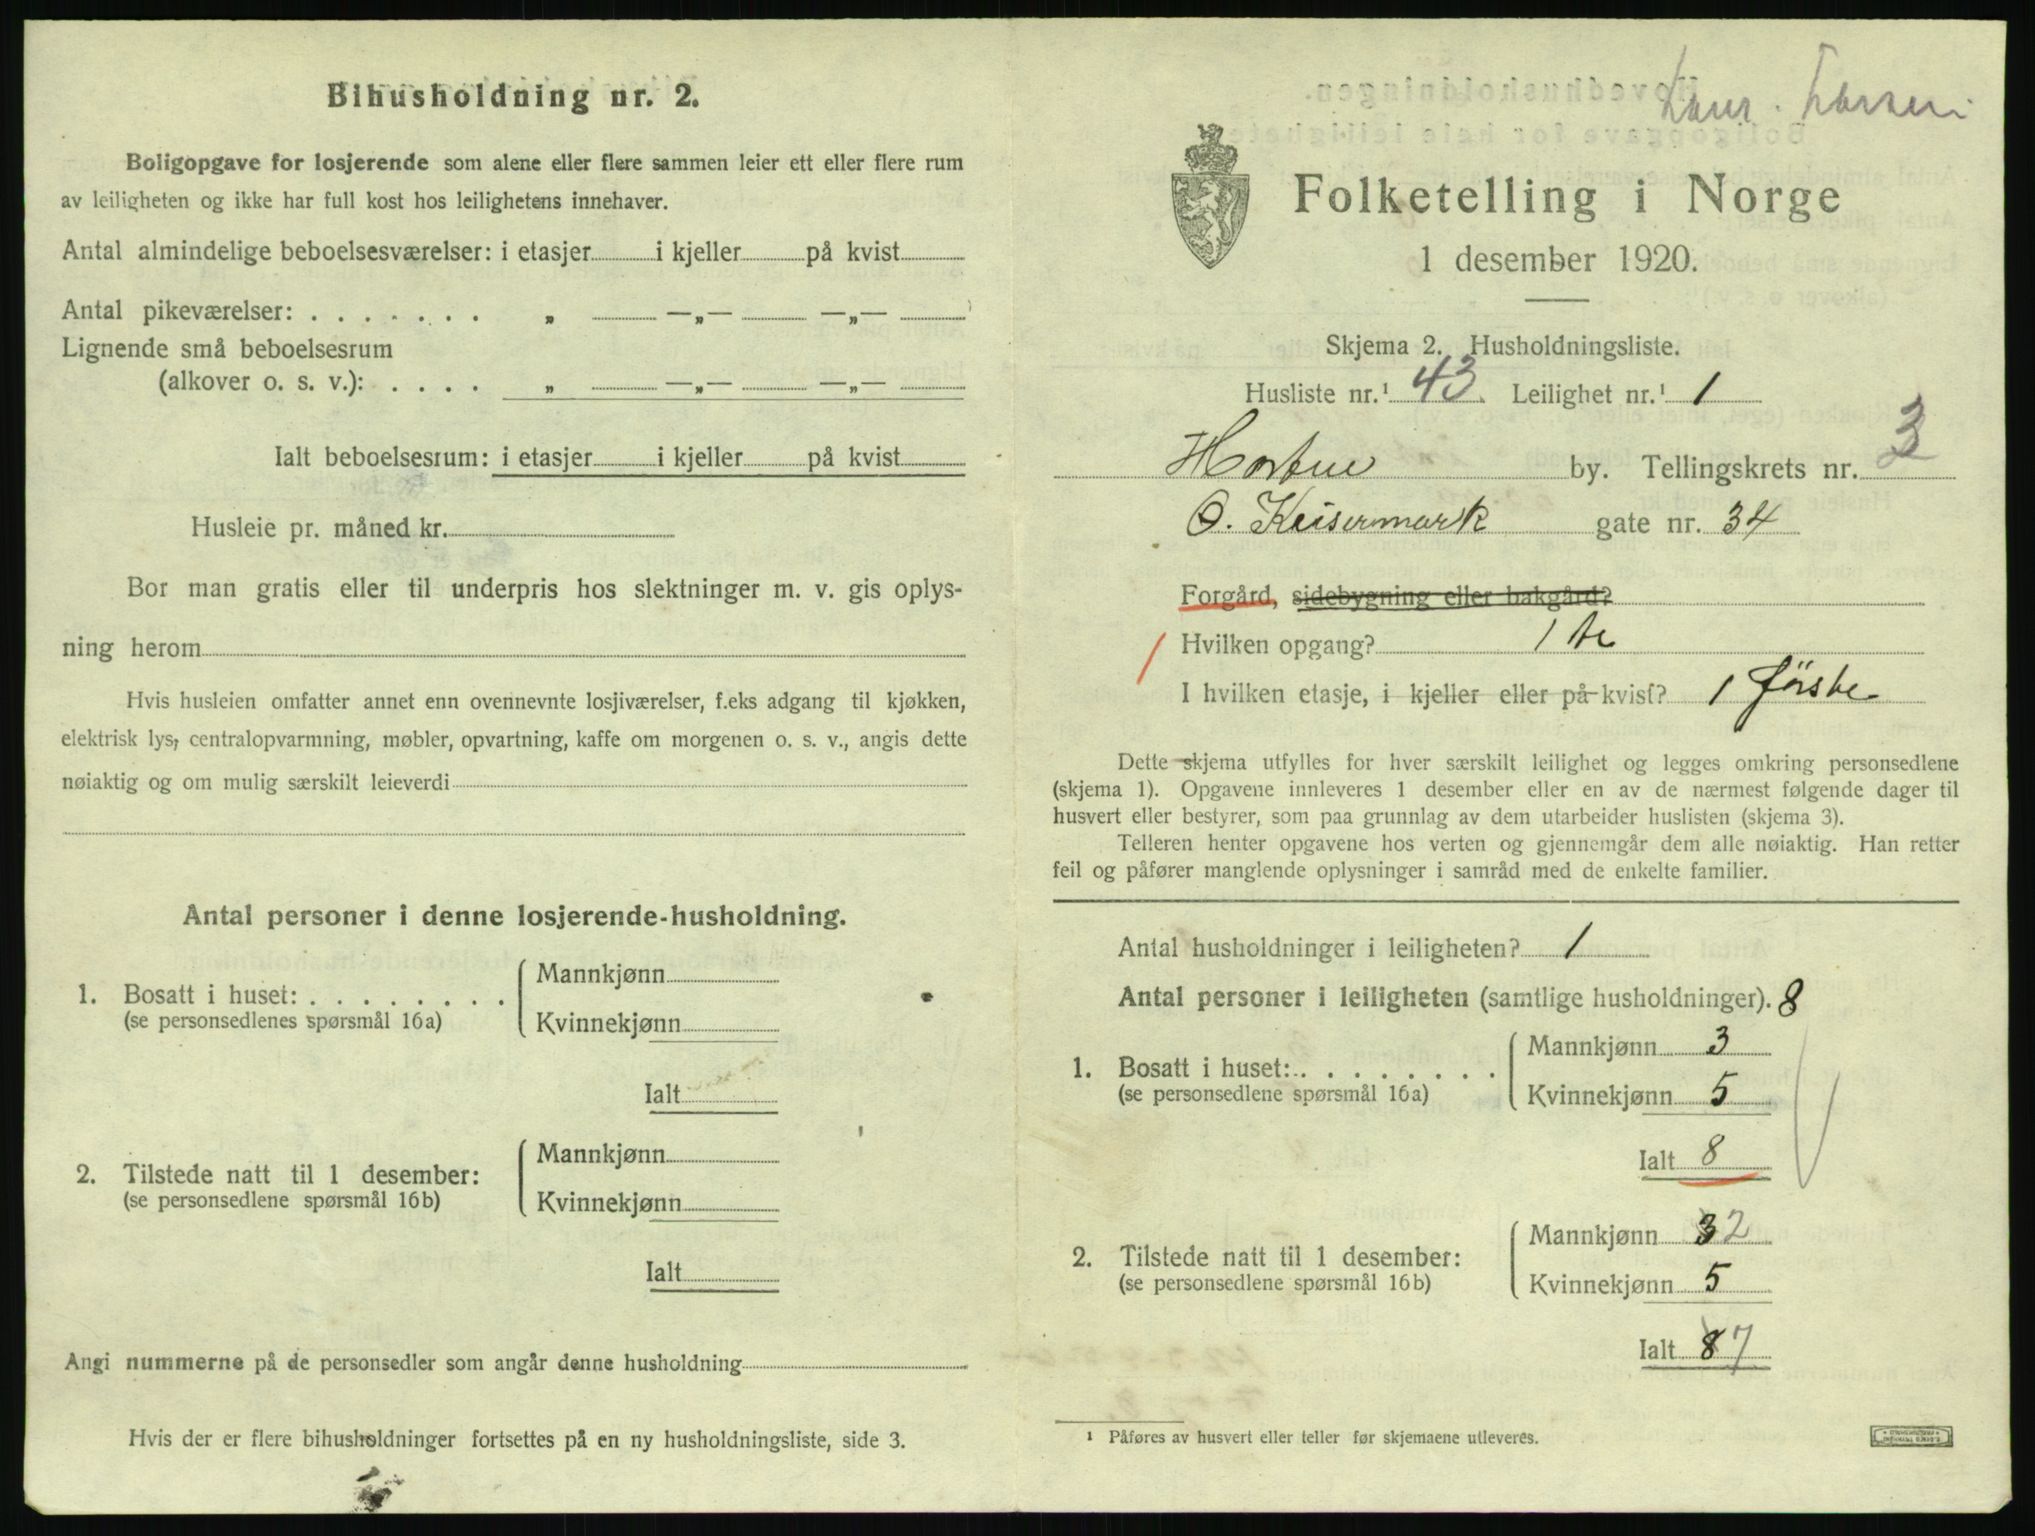 Bihusholdning nr. 2.
Boligopgave for losjerende som alene eller flere sammen leier ett eller flere rum
av leiligheten og ikke har full kost hos leilighetens innehaver.
Antal almindelige beboelsesværelser: i etasjer i kjeller på kvist
Antal pikeværelser: . . . . . . . „ —„— —„—
Lignende små beboelsesrum
(alkover o. s. v.): . . . . „ —„— —„—
Ialt beboelsesrum: i etasjer i kjeller på kvist
Husleie pr. måned kr.
Bor man gratis eller til underpris hos slektninger m. v. gis oplys-
ning herom
Hvis husleien omfatter annet enn ovennevnte losjiværelser, f.eks adgang til kjøkken,
elektrisk lys, centralopvarmning, møbler, opvartning, kaffe om morgenen o. s. v., angis dette
nøiaktig og om mulig særskilt leieverdi
Antal personer i denne losjerende-husholdning.
1. Bosatt i huset: . . . . . . . . Mannkjønn
(se personsedlenes spørsmål 16a) Kvinnekjønn
Ialt
2. Tilstede natt til 1 desember: Mannkjønn
(se personsedlene spørsmål 16b) Kvinnekjønn
Ialt
Angi nummerne på de personsedler som angår denne husholdning
Hvis der er flere bihusholdninger fortsettes på en ny husholdningsliste, side 3.
Laur. Larsen
Folketelling i Norge
1 desember 1920.
Skjema 2. Husholdningsliste.
Husliste nr.¹ 43. Leilighet nr.¹ 1
Horten by. Tellingskrets nr. 3
O. Keisermark gate nr. 34
Forgård, sidebygning eller bakgård?
1 Hvilken opgang? 1 te
I hvilken etasje, i kjeller eller på kvist? 1 förste
Dette skjema utfylles for hver særskilt leilighet og legges omkring personsedlene
(skjema 1). Opgavene innleveres 1 desember eller en av de nærmest følgende dager til
husvert eller bestyrer, som paa grunnlag av dem utarbeider huslisten (skjema 3).
Telleren henter opgavene hos verten og gjennemgår dem alle nøiaktig. Han retter
feil og påfører manglende oplysninger i samråd med de enkelte familier.
Antal husholdninger i leiligheten? 1
Antal personer i leiligheten (samtlige husholdninger). 8
1. Bosatt i huset: . . . . . . . . Mannkjønn 3
(se personsedlene spørsmål 16a) Kvinnekjønn 5
Ialt 8
2. Tilstede natt til 1 desember: Mannkjønn 3 2
(se personsedlene spørsmål 16b) Kvinnekjønn 5
Ialt 8 7
¹ Påføres av husvert eller teller før skjemaene utleveres.